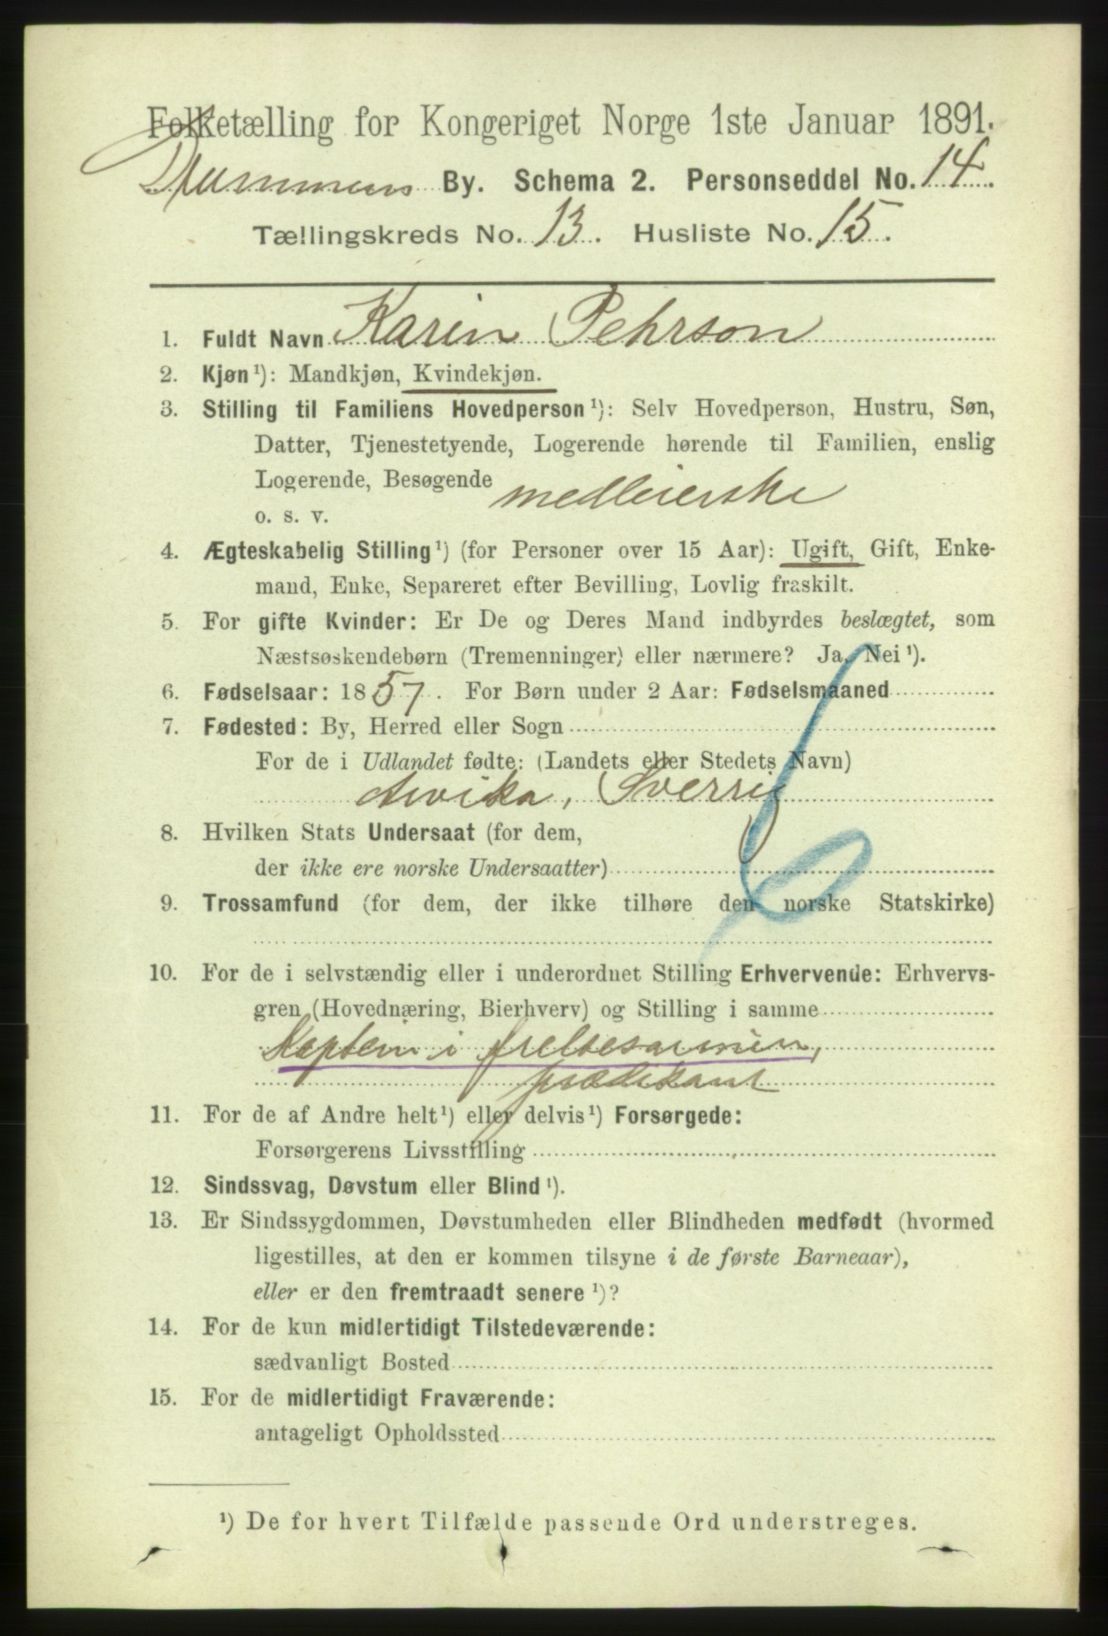 Folketælling for Kongeriget Norge 1ste Januar 1891.
Drammens By. Schema 2. Personseddel No. 14.
Tællingskreds No. 13. Husliste No. 15.
1. Fuldt Navn Karin Pehrson
2. Kjøn¹): Mandkjøn, Kvindekjøn.
3. Stilling til Familiens Hovedperson¹): Selv Hovedperson, Hustru, Søn,
Datter, Tjenestetyende, Logerende hørende til Familien, enslig
Logerende, Besøgende medleierske
o. s. v.
4. Ægteskabelig Stilling¹) (for Personer over 15 Aar): Ugift, Gift, Enke-
mand, Enke, Separeret efter Bevilling, Lovlig fraskilt.
5. For gifte Kvinder: Er De og Deres Mand indbyrdes beslægtet, som
Næstsøskendebørn (Tremenninger) eller nærmere? Ja, Nei¹).
6. Fødselsaar: 1857. For Børn under 2 Aar: Fødselsmaaned
7. Fødested: By, Herred eller Sogn
For de i Udlandet fødte: (Landets eller Stedets Navn)
Arvika, Sverrig
8. Hvilken Stats Undersaat (for dem,
der ikke ere norske Undersaatter)
9. Trossamfund (for dem, der ikke tilhøre den norske Statskirke)
10. For de i selvstændig eller i underordnet Stilling Erhvervende: Erhvervs-
gren (Hovednæring, Bierhverv) og Stilling i samme
Kaptein i frelsesarmien,
prædikant
11. For de af Andre helt¹) eller delvis¹) Forsørgede:
Forsørgerens Livsstilling
12. Sindssvag, Døvstum eller Blind¹).
13. Er Sindssygdommen, Døvstumheden eller Blindheden medfødt (hvormed
ligestilles, at den er kommen tilsyne i de første Barneaar),
eller er den fremtraadt senere¹)?
14. For de kun midlertidigt Tilstedeværende:
sædvanligt Bosted
15. For de midlertidigt Fraværende:
antageligt Opholdssted
¹) De for hvert Tilfælde passende Ord understreges.